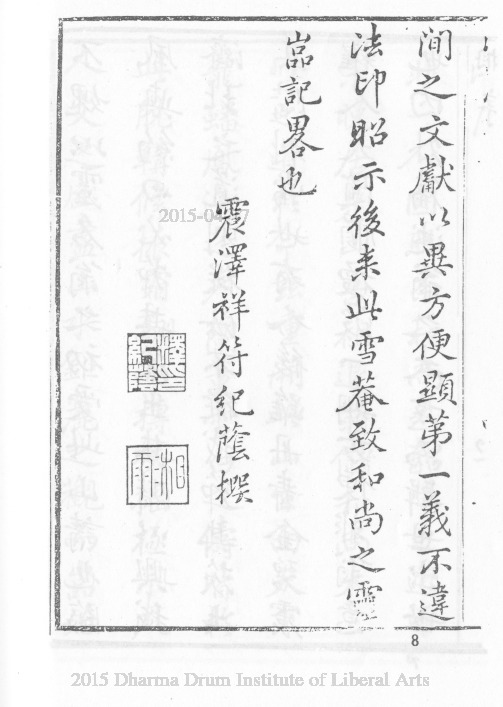 間之文獻以異方便顯第一義不違
法印昭示後来此雪菴致和尚之靈
嵓記畧也
震澤祥符紀蔭撰
2015-04-
8
2015 Dharma Drum Institute of Liberal Arts